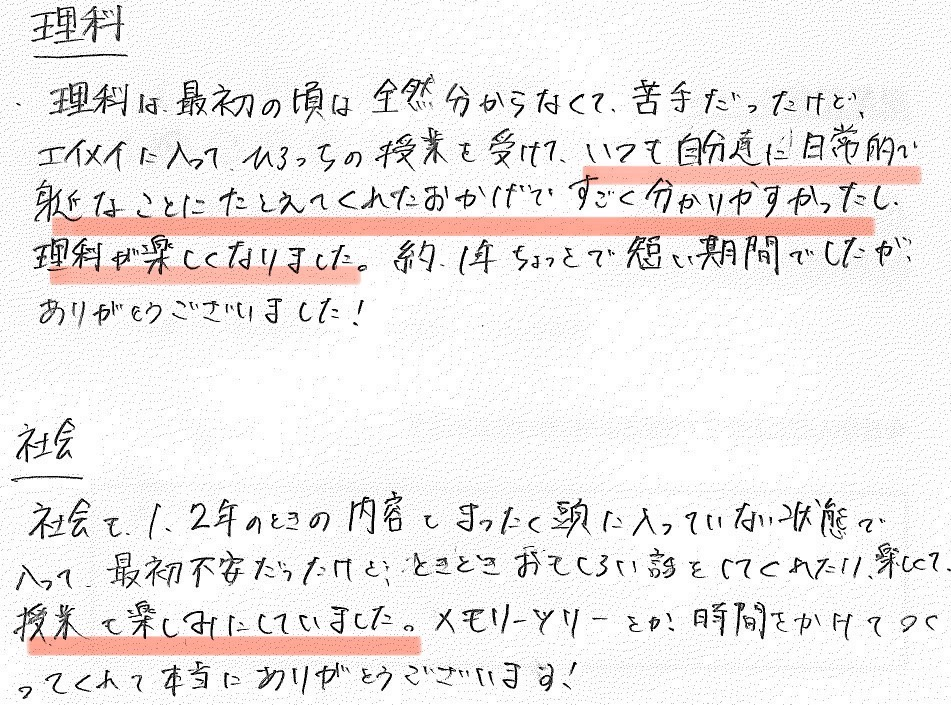 理科
理科は、最初の頃は全然分からなくて、苦手だったけど、
エイメイに入って、ひろっちの授業を受けて、いつも自分達に日常的で
身近なことにたとえてくれたおかげですごく分かりやすかったし、
理科が楽しくなりました。約、1年ちょっとで短い期間でしたが、
ありがとうございました!
社会
社会も、1、2年のときの内容もまったく頭に入っていない状態で
入って、最初不安だったけど、ときどきおもしろい話をしてくれたり、楽しくて、
授業も楽しみにしていました。メモリーツリーとか、時間をかけてつく
ってくれて本当にありがとうございます!